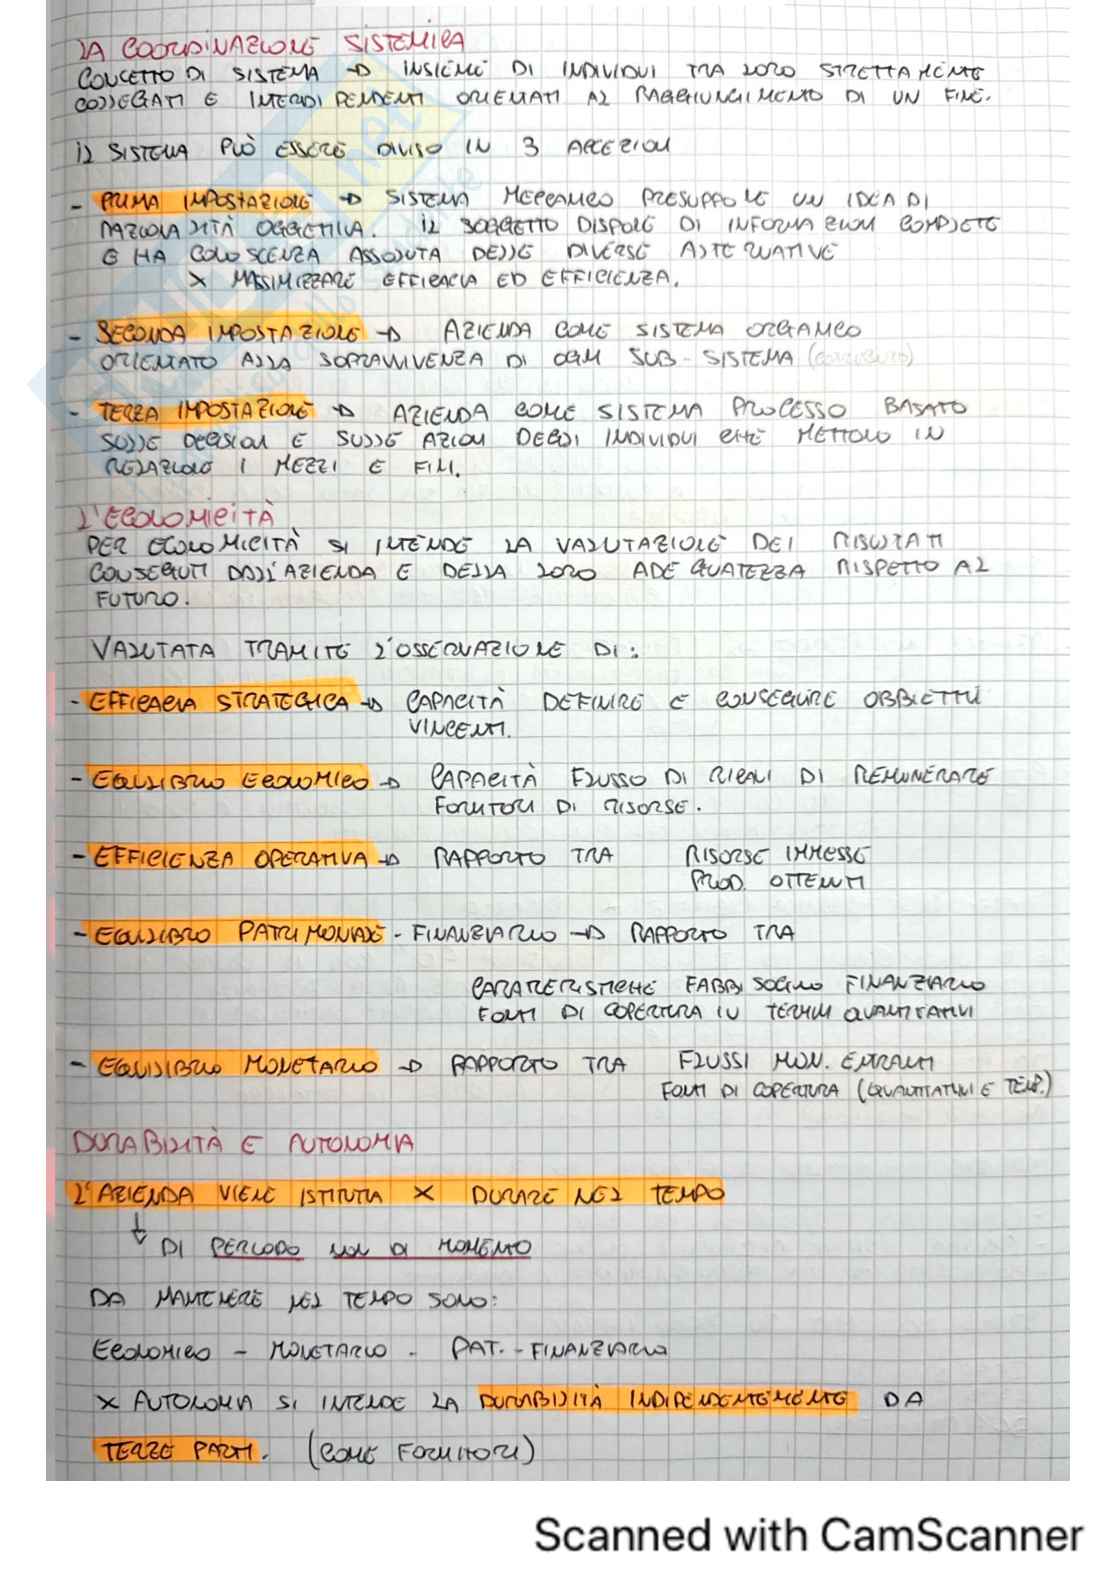 LA COORDINAZIONE SISTEMICA
CONCETTO DI SISTEMA → INSIEME DI INDIVIDUI TRA LORO STRETTAMENTE
COLLEGATI E INTERDIPENDENTI ORIENTATI AL RAGGIUNGIMENTO DI UN FINE.
IL SISTEMA PUÒ ESSERE DIVISO IN 3 ACCEZIONI
- PRIMA IMPOSTAZIONE → SISTEMA MECCANICO PRESUPPONE UN IDEA DI
RAZIONALITÀ OGGETTIVA. IL SOGGETTO DISPONE DI INFORMAZIONI COMPLETE
E HA CONOSCENZA ASSOLUTA DELLE DIVERSE ALTERNATIVE
X MASSIMIZZARE EFFICACIA ED EFFICIENZA.
- SECONDA IMPOSTAZIONE → AZIENDA COME SISTEMA ORGANICO
ORIENTATO ALLA SOPRAVVIVENZA DI OGNI SUB-SISTEMA
- TERZA IMPOSTAZIONE → AZIENDA COME SISTEMA PROCESSO BASATO
SULLE DECISIONI E SULLE AZIONI DEGLI INDIVIDUI CHE METTONO IN
RELAZIONE I MEZZI E FINI.
L'ECONOMICITÀ
PER ECONOMICITÀ SI INTENDE LA VALUTAZIONE DEI RISULTATI
CONSEGUITI DALL'AZIENDA E DELLA LORO ADEGUATEZZA RISPETTO AL
FUTURO.
VALUTATA TRAMITE L'OSSERVAZIONE DI:
- EFFICACIA STRATEGICA → CAPACITÀ DEFINIRE E CONSEGUIRE OBBIETTIVI
VINCENTI.
- EQUILIBRIO ECONOMICO → CAPACITÀ FLUSSO DI RICAVI DI REMUNERARE
FORNITORI DI RISORSE.
- EFFICIENZA OPERATIVA → RAPPORTO TRA RISORSE IMMESSE
PROD. OTTENUTI
- EQUILIBRO PATRIMONIALE - FINANZIARIO → RAPPORTO TRA
CARATTERISTICHE FABBISOGNO FINANZIARIO
FONTI DI COPERTURA IN TERMINI QUANTITATIVI
- EQUILIBRIO MONETARIO → RAPPORTO TRA FLUSSI MON. ENTRANTI
FONTI DI COPERTURA (QUANTITATIVI E TEMP.)
DURABILITÀ E AUTONOMIA
L'AZIENDA VIENE ISTITUITA X DURARE NEL TEMPO
↓ DI PERIODO NON DI MOMENTO
DA MANTENERE NEL TEMPO SONO:
ECONOMICO - MONETARIO - PAT. - FINANZIARIO
X AUTONOMIA SI INTENDE LA DURABILITÀ INDIPENDENTEMENTE DA
TERZE PARTI. (COME FORNITORI)
Scanned with CamScanner